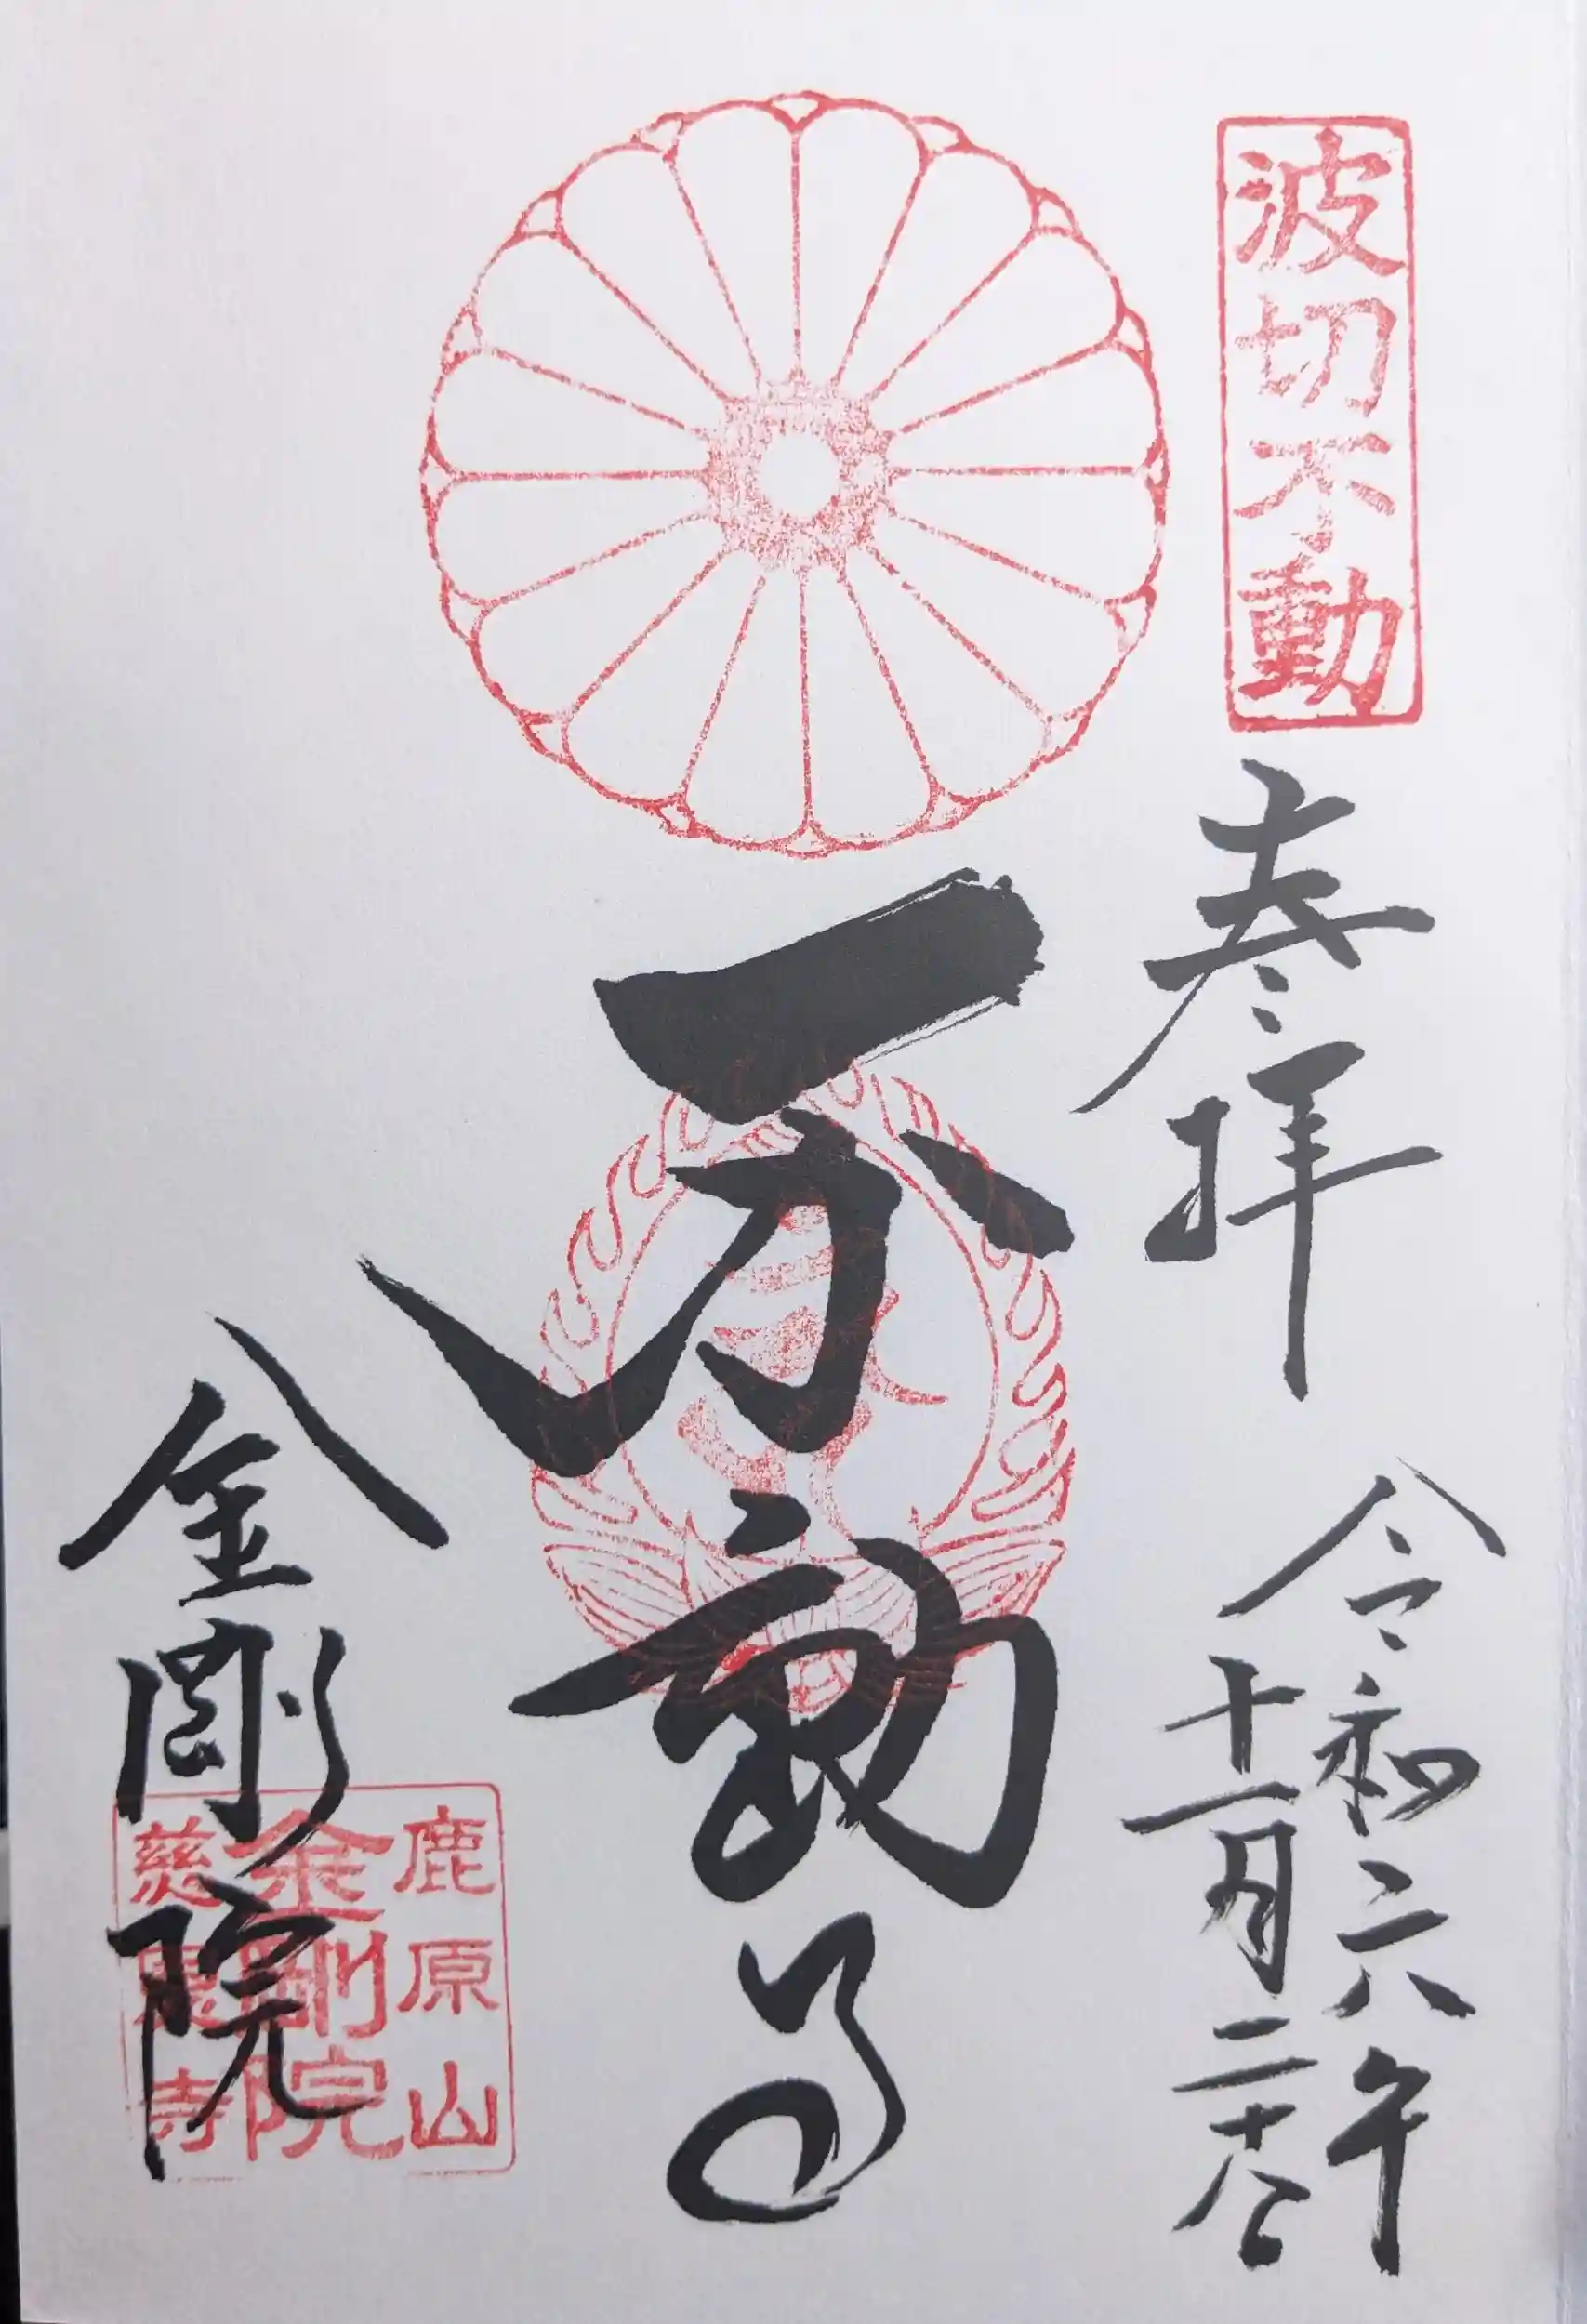 波切不動
奉拝
令和六年
十一月二十八日
不動尊
金剛院
鹿原山
金剛院
慈恩寺